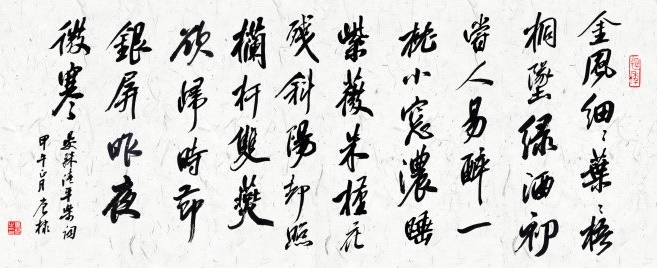 金風細〻葉〻梧
桐墜绿酒初
嘗人易醉一
枕小窓濃睡
紫薇朱槿花
残斜陽却照
欄杆雙燕
欲歸時節
銀屏昨夜
微寒
晏殊清平樂詞
甲午正月